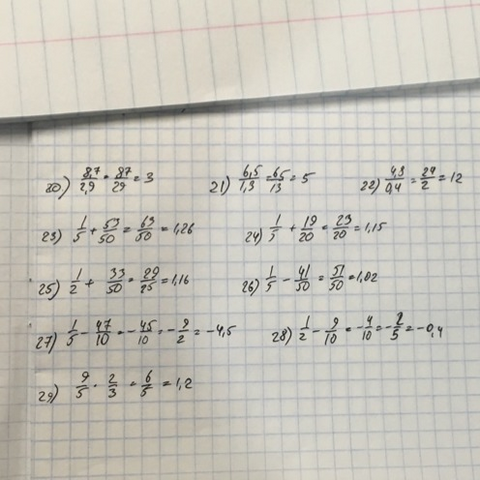 20) 8,7/2,9 = 87/29 = 3 21) 6,5/1,3 = 65/13 = 5 22) 4,8/0,4 = 24/2 = 12
23) 1/5 + 53/50 = 63/50 = 1,26 24) 1/5 + 19/20 = 23/20 = 1,15
25) 1/2 + 33/50 = 29/25 = 1,16 26) 1/5 - 41/50 = 51/50 = 1,02
27) 1/5 - 47/10 = - 45/10 = - 9/2 = -4,5 28) 1/2 - 9/10 = - 4/10 = - 2/5 = -0,4
29) 9/5 · 2/3 = 6/5 = 1,2